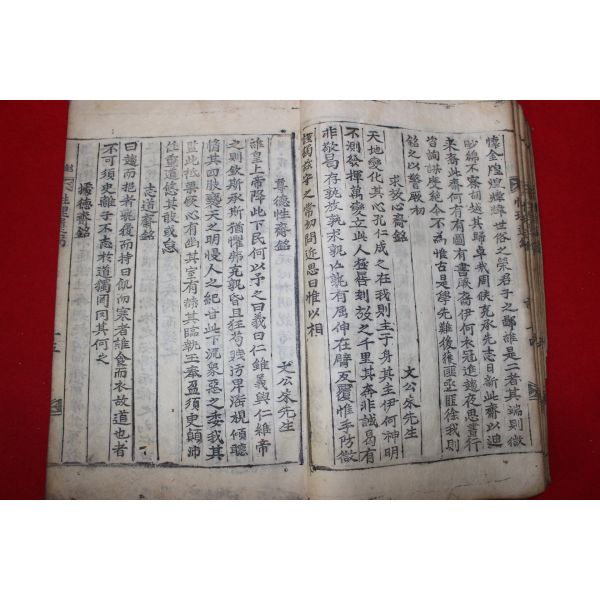 懷金煌煌煒煒世俗之榮君子之鄙誰是二者其端則微
眇綿不察胡越其歸卓哉周侯克承先志日新此齋以迪
來裔此齋何有有圖有書厥裔伊何衣冠進趍夜思晝行
咨詢謀度絶今不爲惟古是學先難後獲匪亟匪徐我則
銘之以警厥初
求放心齋銘 文公朱先生
天地變化其心孔仁成之在我則主于身其主伊何神明
不測發揮萬變立此人極晷刻放之千里其奔非誠曷有
非敬曷存孰放孰求孰亡孰有屈伸在臂反覆惟手防微
謹獨玆守之常切問近思曰惟以相
尊德性齋銘 文公朱先生
維皇上帝降此下民何以予之曰義曰仁維義與仁維帝
之則欽斯承斯猶懼弗克孰昏且狂苟賤汚卑淫視傾聽
惰其四肢褻天之明慢人之紀甘此下流衆惡之委我其
監此祗栗厥心有幽其室有赫其臨執玉奉盈須臾顚沛
任重道悠其敢或怠
志道齋銘
曰趍而挹者孰履而持曰飢而寒者誰食而衣故道也者
不可須臾離子不志於道獨罔罔其何之
據德齋銘